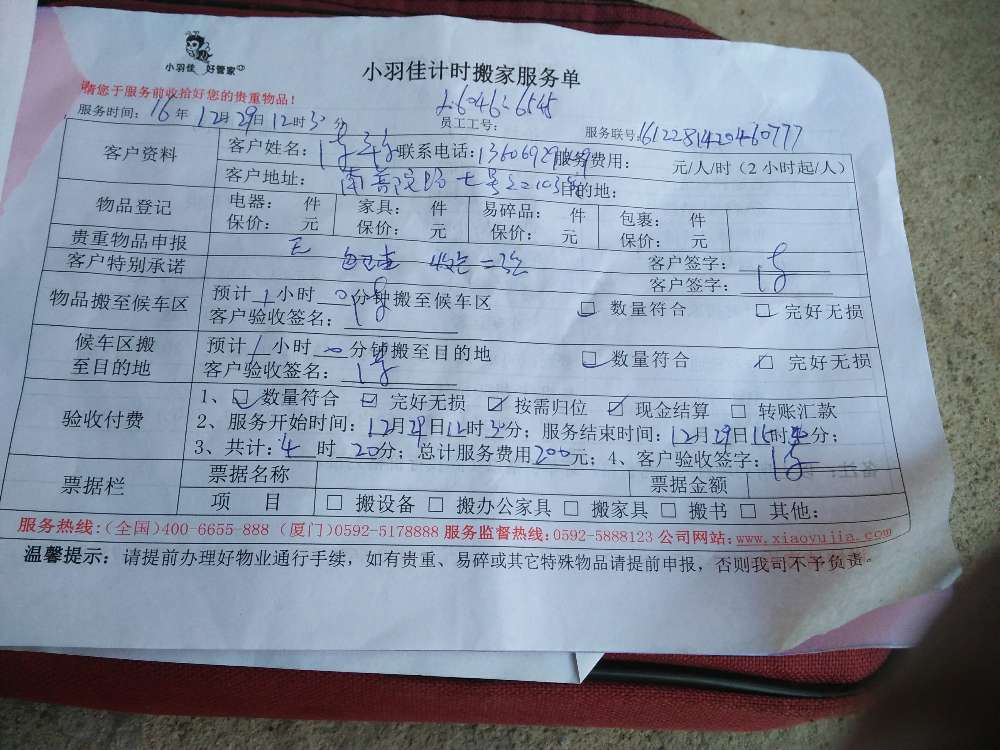 小羽佳 好管家
小羽佳计时搬家服务单
请您于服务前收拾好您的贵重物品!
服务时间: 16年12月29日12时30分 员工工号: 服务联号:
客户资料 客户姓名: 联系电话: 服务费用: 元/人/时(2小时起/人)
客户地址: 目的地:
物品登记 电器: 件 家具: 件 易碎品: 件 包裹: 件
保价: 元 保价: 元 保价: 元 保价: 元
贵重物品申报 无 客户签字:
客户特别承诺 客户签字:
物品搬至候车区 预计1小时0分钟搬至候车区 □ 数量符合 □ 完好无损
客户验收签名:
候车区搬至目的地 预计1小时0分钟搬至目的地 □ 数量符合 □ 完好无损
客户验收签名:
验收付费 1、□ 数量符合 □ 完好无损 □ 按需归位 □ 现金结算 □ 转账汇款
2、服务开始时间:12月29日12时30分;服务结束时间:12月29日16时50分;
3、共计:4时20分;总计服务费用200元;4、客户验收签字:
票据栏 票据名称 票据金额
项 目 □ 搬设备 □ 搬办公家具 □ 搬家具 □ 搬书 □ 其他:
服务热线:(全国)400-6655-888 (厦门)0592-5178888 服务监督热线:0592-5888123 公司网站:www.xiaoyujia.com
温馨提示:请提前办理好物业通行手续,如有贵重、易碎或其它特殊物品请提前申报,否则我司不予负责。